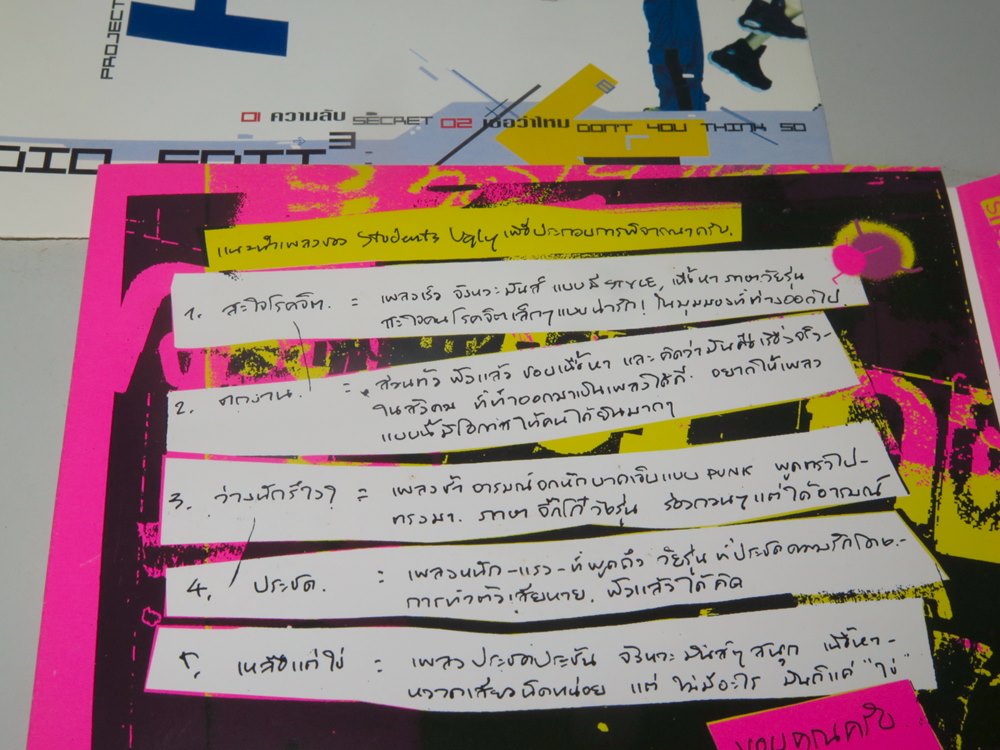 PROJECT
01 ความลับ SECRET 02 เธอว่าไหม DONT YOU THINK SO
3
แนะนำเพลงของ Students Ugly เพื่อประกอบการพิจารณาครับ.
1. สะใจโรคจิต. = เพลงเร็ว จังหวะมันส์ แบบมี STYLE, เนื้อหา ภาษาวัยรุ่น
สะใจคนโรคจิตเล็กๆ แบบน่ารัก! ในมุมมองที่ต่างออกไป.
2. ตกงาน. = ส่วนตัว ฟังแล้ว ชอบเนื้อหา และคิดว่ามันคือเรื่องจริง-
ในสังคม ที่ทำออกมาเป็นเพลงได้ดี. อยากให้เพลง
แบบนี้มีโอกาสให้คนได้ยินมากๆ
3. ว่างนักรึไง? = เพลงช้า อารมณ์อกหักบาดเจ็บแบบ PUNK พูดตรงไป-
ตรงมา. ภาษา จิ๊กโก๋วัยรุ่น ร้องกวนๆ แต่ได้อารมณ์
4. ประชด. = เพลงหนัก-แรง-ที่พูดถึง วัยรุ่น ที่ประชดความรักโดย-
การทำตัวเสียหาย. ฟังแล้วได้คิด
5. เหลือแต่ไข่ = เพลงประชดประชัน จังหวะ มันส์ๆ สนุก เนื้อหา-
หวาดเสียวนิดหน่อย แต่ ไม่มีอะไร มันก็แค่ "ไข่"
ขอบคุณครับ